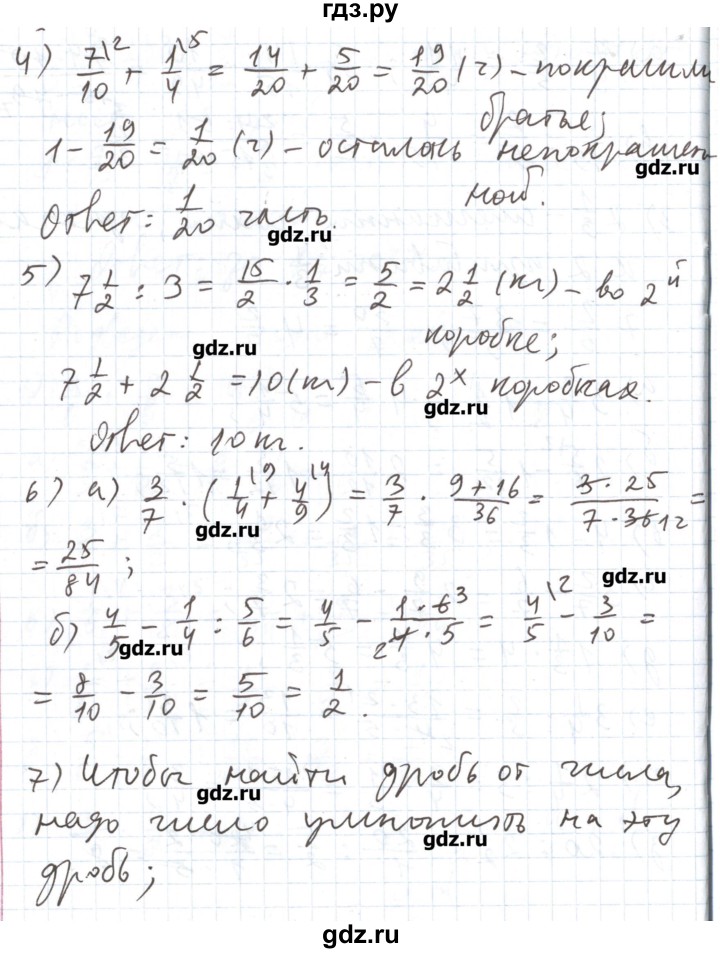 гдз.ру
4) 7/10\2 + 1/4\5 = 14/20 + 5/20 = 19/20 (ч) – покрасили
братье;
1 – 19/20 = 1/20 (ч) – осталась непокрашен
gdz.ru
ной.
Ответ: 1/20 часть.
gdz.ru
5) 7 1/2 : 3 = 15/2 · 1/3 = 5/2 = 2 1/2 (кг) – во 2й
gdz.ru
коробке;
7 1/2 + 2 1/2 = 10 (кг) – в 2х коробках.
gdz.ru
Ответ: 10 кг.
6) а) 3/7 · (1/4\9 + 4/9\4) = 3/7 · (9+16)/36 = (3 · 25)/(7 · 36 12) =
gdz.ru
= 25/84 ;
gdz.ru
б) 4/5 – 1/4 : 5/6 = 4/5 – (1 · 6 3)/(2 4 · 5) = 4/5\2 – 3/10 =
gdz.ru
= 8/10 – 3/10 = 5/10 = 1/2 .
7) Чтобы найти дробь от числа,
gdz.ru
надо число умножить на эту
gdz.ru
дробь;
gdz.ru